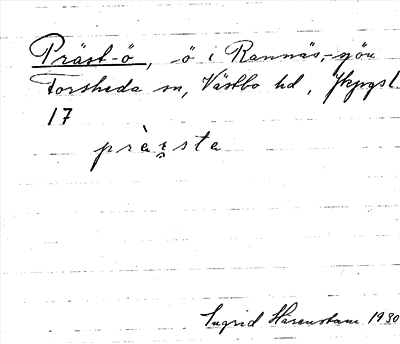 Präst-ö, ö i Rannäs-sjön
Forsheda sn, Västbo hd, Jkpgs l.
17
prä̀sta
Ingrid Harenstam 1930